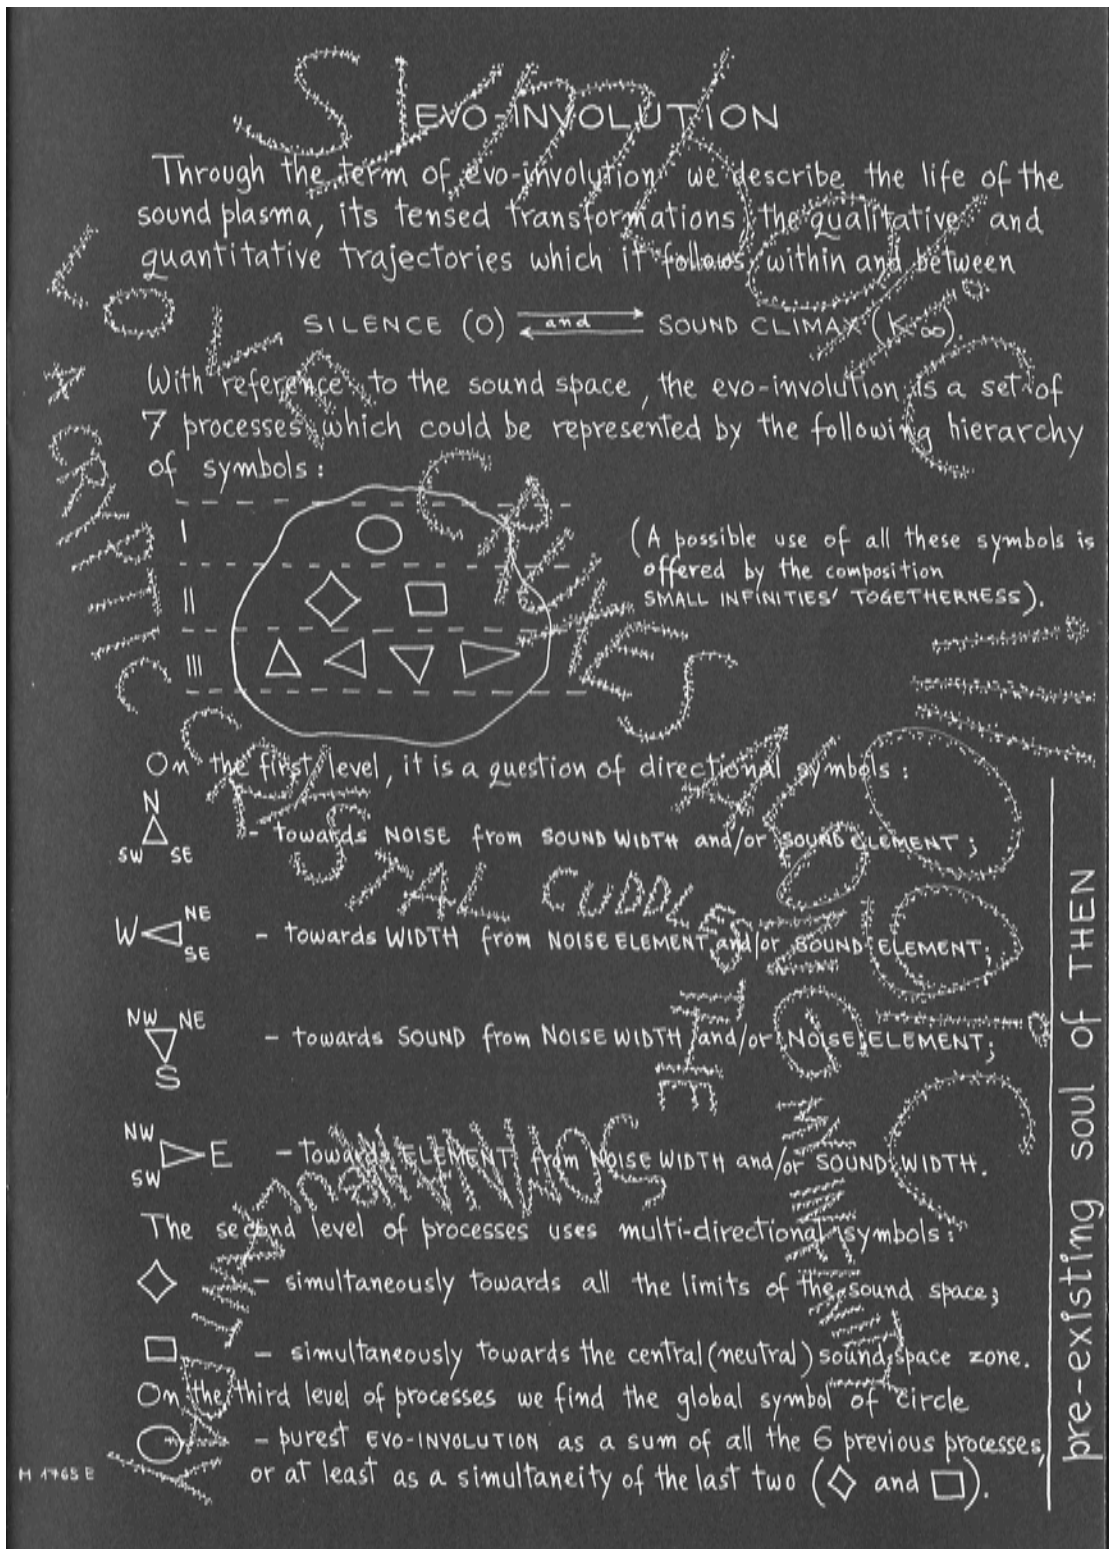 EVO-INVOLUTION
Through the term of evo-involution we describe the life of the
sound plasma, its tensed transformations, the qualitative and
quantitative trajectories which it follows, within and between
SILENCE (O) and SOUND CLIMAX (K·∞).
With reference to the sound space, the evo-involution is a set of
7 processes which could be represented by the following hierarchy
of symbols:
I
II
III
(A possible use of all these symbols is
offered by the composition
SMALL INFINITIES' TOGETHERNESS).
On the first level, it is a question of directional symbols:
N
SW SE
- towards NOISE from SOUND WIDTH and/or SOUND ELEMENT;
W NE
SE
- towards WIDTH from NOISE ELEMENT and/or SOUND ELEMENT;
NW NE
S
- towards SOUND from NOISE WIDTH and/or NOISE ELEMENT;
NW
E
SW
- towards ELEMENT from NOISE WIDTH and/or SOUND WIDTH.
The second level of processes uses multi-directional symbols:
- simultaneously towards all the limits of the sound space;
- simultaneously towards the central (neutral) sound space zone.
On the third level of processes we find the global symbol of circle
- purest EVO-INVOLUTION as a sum of all the 6 previous processes,
or at least as a simultaneity of the last two (◇ and □).
pre-existing soul of THEN
M 1765 E
SYmbolic
CRYPTIC
CRYSTAL CUDDLES
THE